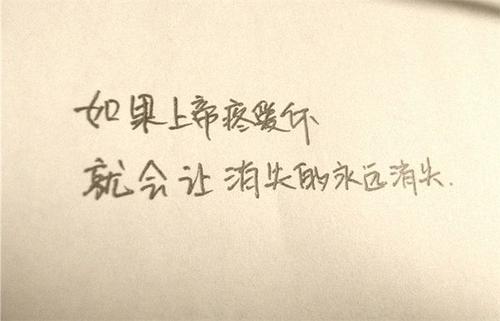 如果上帝疼爱你
就会让消失的永远消失.